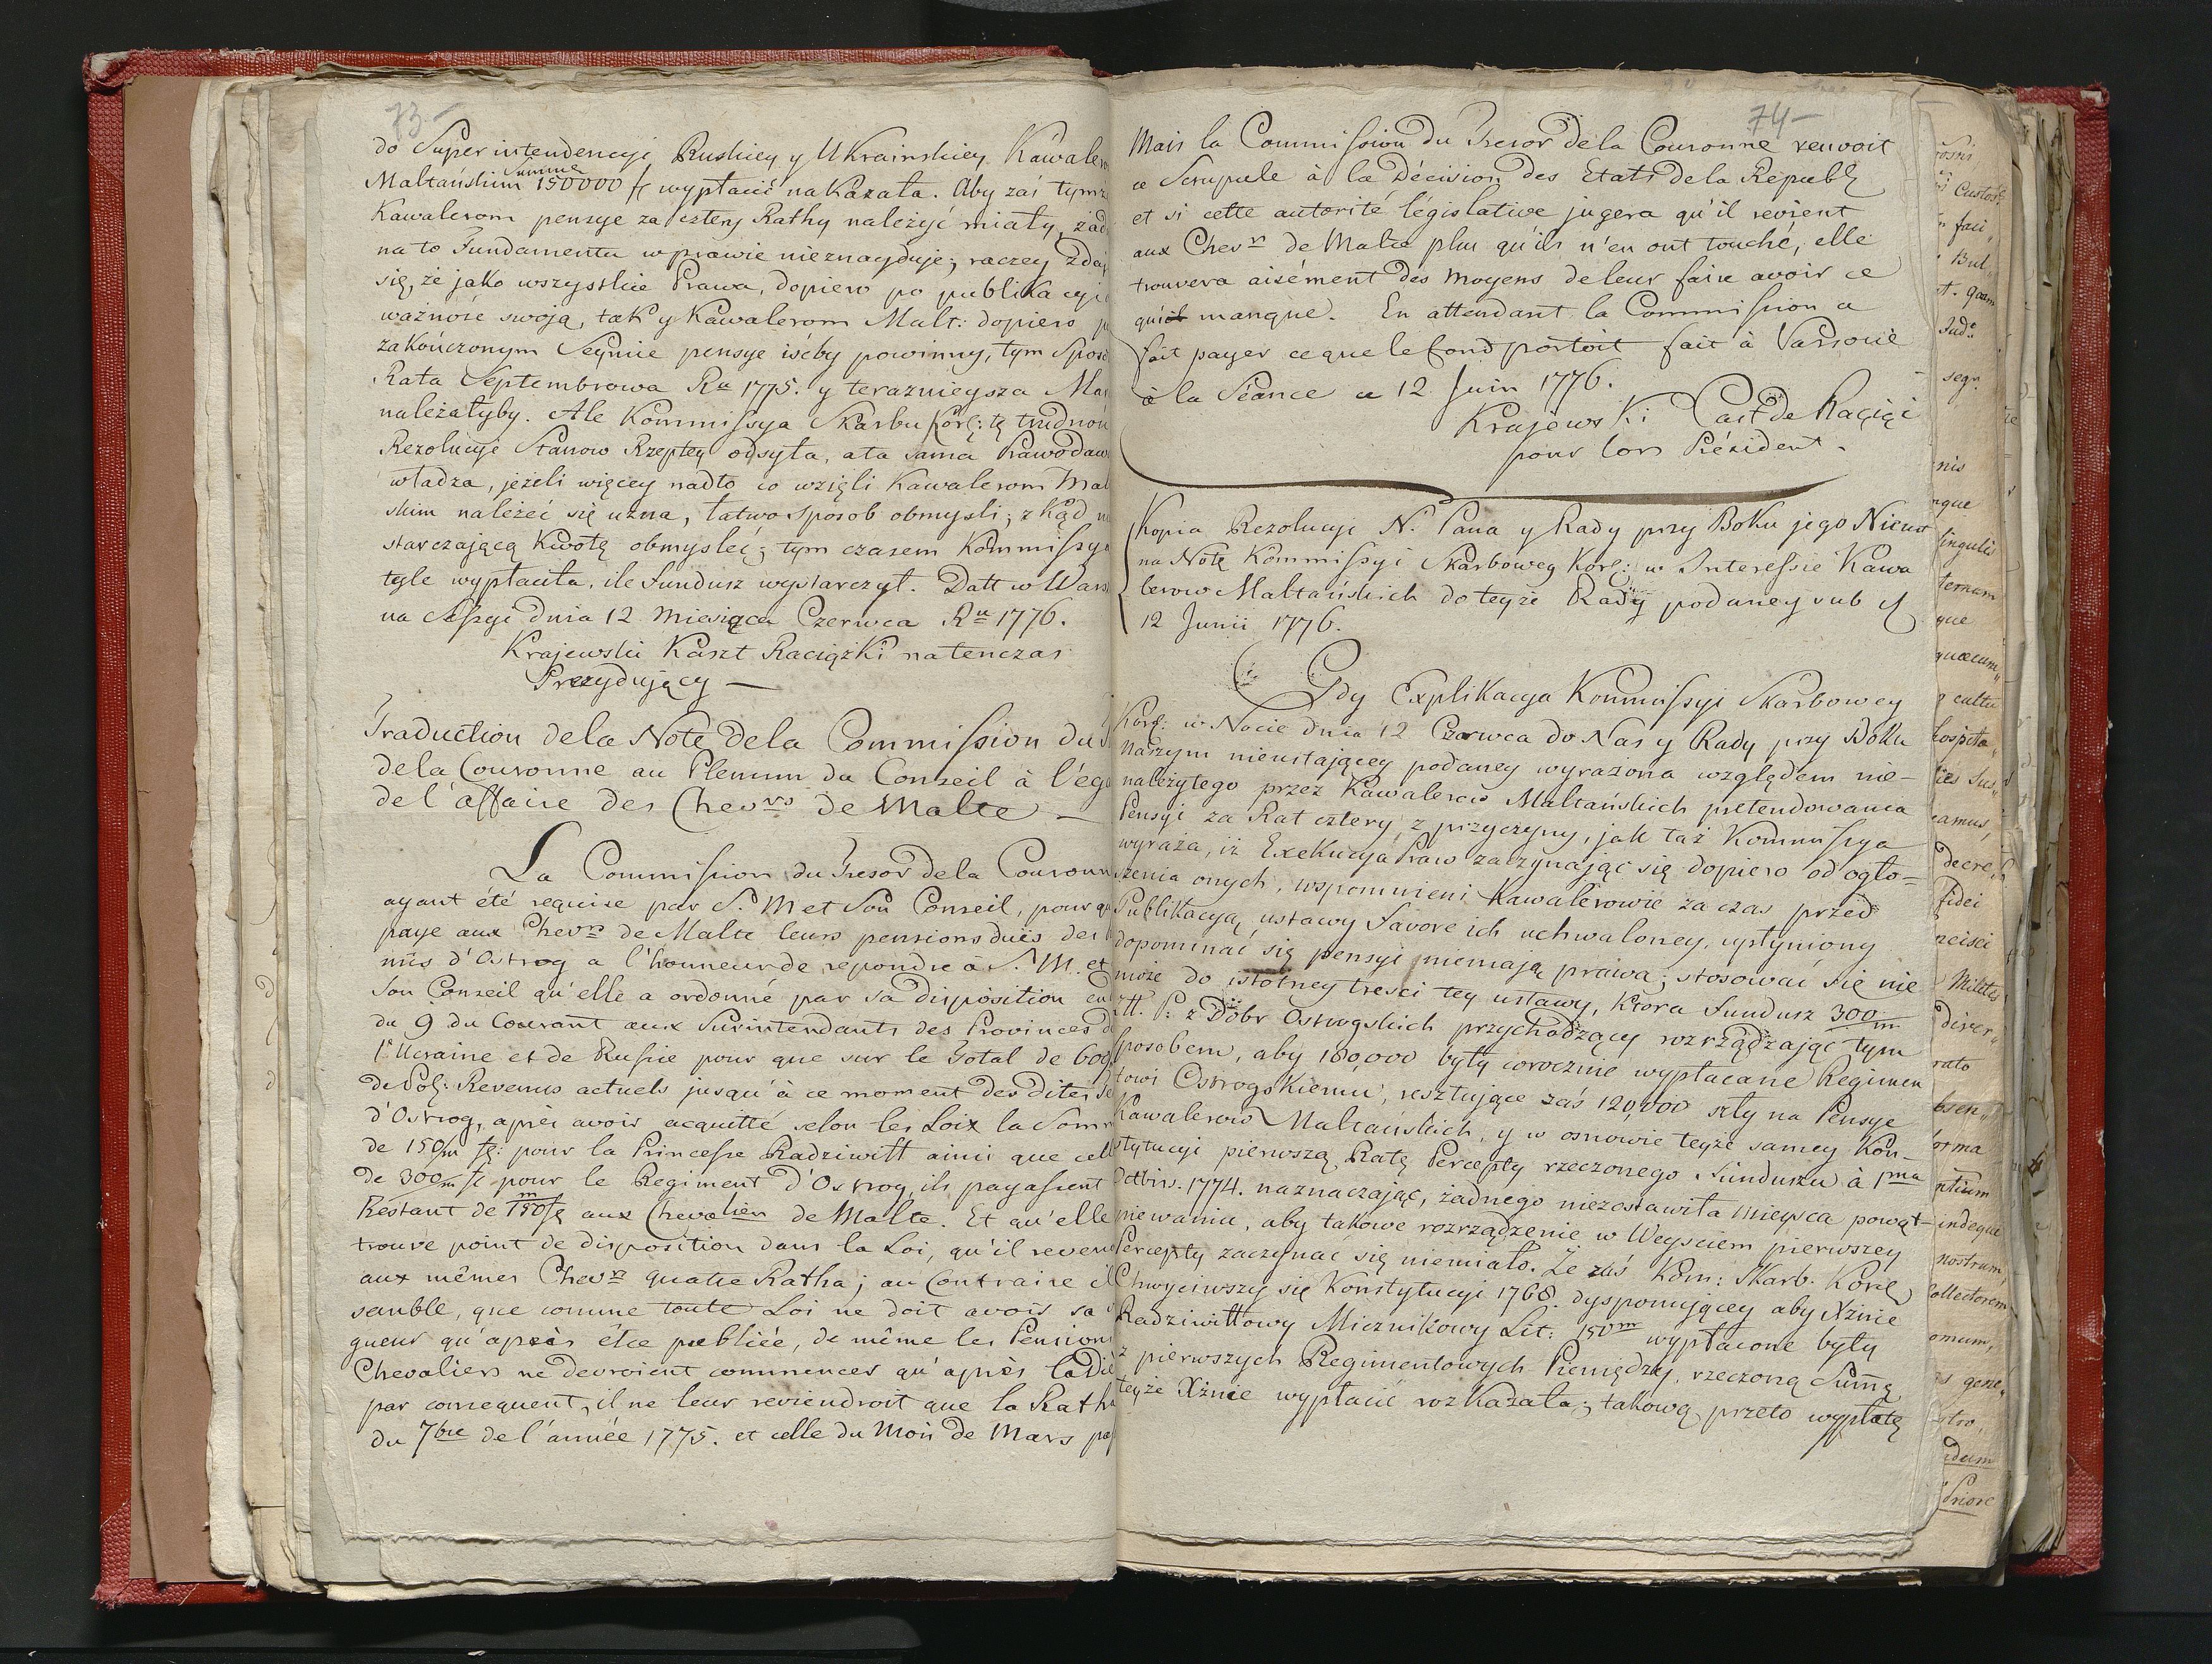 73-
do Superintendencyi Ruskiey y Ukrainskiey Kawalero
Summę
Maltańskim 150000 wypłacić nakazała. Aby zaś tymże
Kawalerom pensye za cztery Rathy należyć miały, żad
na to Fundamentu w prawie nieznayduje; raczey zda
się, że jako wszystkie Prawa, dopiero po publikacyi
ważność swoją, tak y Kawalerom Malt: dopiero p
zakończonym Seymie pensye iśćby powinny, tym Sposo
Rata Septembrowa Ru 1775. y teraznieysza Mar
należałyby. Ale Kommissya Skarbu Kor: tę trudnoś
Rezolucyi Stanow Rzeptey odsyła, a ta sama Prawodaw
władza, jeżeli więcey nadto co wzięli Kawalerom Mal
skim należeć się uzna, łatwo sposob obmyśli; zkąd n
starczającą kwotę obmysleć; tym czasem Kommissya
tyle wypłaciła, ile Fundusz wystarczył. Datt w Wars
na Sessyi dnia 12 Miesiąca Czerwca Ru 1776.
Krajewski Kaszt Raciązki natenczas
Prezydujący —
Traduction de la Note de la Commission du
de la Couronne au Plenum du Conseil à l'ega
de l'affaire des Chevrs de Malte —
La Commission du Tresor de la Couronn
ayant été requise par S. M et Son Conseil, pour qu
paye aux Chevrs de Malte leurs pensions duës des
niis d'Ostrog a l'honneur de repondre à S. M. et
Son Conseil qu'elle a ordonné par sa disposition en
du 9 du Courant aux Surintendants des Provinces d
l'Ucraine et de Russie pour que sur le Total de 600
de Pol: Revenus actuels jusqu'à ce moment des dites
d'Ostrog, après avoir acquitté selon les Loix la Som
de 150/m fl: pour la Princesse Radziwiłł ainsi que cell
de 300/m fl pour le Regiment d'Ostrog, ils payassent
Restant de 150/m fl aux Chevalier de Malte. Et qu'elle
trouve point de disposition dans la Loi, qu'il reven
aux mêmes Chevrs quatre Ratha; au Contraire il
semble, que comme toute Loi ne doit avoir sa
gueur qu'après être publiée, de même les Pension
Chevaliers ne devroient commencer qu'après la Diè
par consequent, il ne leur reviendroit que la Rath
du 7bre de l'année 1775. et celle du Mois de Mars pa
74-
Mais la Commission du Tresor de la Couronne renvoit
ce Scrupule à la Décision des Etats de la Republ
et si cette autorité législative jugera qu'il revient
aux Chevrs de Malte plus qu'ils n'en ont touché, elle
trouvera aisément des moyens de leur faire avoir ce
qui manque. En attendant la Commission a
fait payer ce que le fond portoit fait à Varsovie
à la Séance ce 12 Juin 1776.
Krajewski Cast de Raciąż
pour lors Président.
Kopia Rezolucyi N. Pana y Rady przy Boku jego Nieust
na Notę Kommissyi Skarbowey Kor: w Interessie Kawa
lerow Maltańskich do teyże Rady podaney sub
12 Junii 1776.
Gdy Explikacya Kommissyi Skarbowey
Kor: w Nocie dnia 12 Czerwca do Nas y Rady przy Boku
Naszym nieustającey podaney wyrażona względem nie-
należytego przez Kawalerow Maltańskich pretendowania
Pensyi za Rat cztery, z przyczyny, jak taż Kommissya
wyraża, iż Exekucya Praw zaczynając się dopiero od ogło=
szenia onych, wspomnieni Kawalerowie za czas przed
Publikacyą ustawy Favore ich uchwaloney, upłyniony
dopominać się pensyi niemają prawa; stosować się nie
może do istotney tresci tey ustawy, ktora Fundusz 300/m
Zł. P. z Dobr Ostrogskich przychodzący rozrządzając tym
sposobem, aby 180,000 były corocznie wypłacane Regimen
towi Ostrogskiemu, resztujące zaś 120,000 szły na Pensye
Kawalerow Maltańskich, y w osnowie teyże samey Kon-
stytucyi pierwszą Ratę Percepty rzeczonego Funduszu à 1ma
Octbris. 1774. naznaczając, żadnego niezostawiła mieysca powąt-
piewaniu, aby takowe rozrządzenie w Weysciem pierwszey
Percepty zaczynać się niemiało. Że zaś Kom: Skarb. Kor
Chwyciwszy się Konstytucyi 1768. dysponującey aby Xżnie
Radziwiłłowy Miecznikowy Lit: 150m wypłacone były
z pierwszych Regimentowych Pieniędzy, rzeczoną Summę
teyże Xżnie wypłacić rozkazała; takową przeto wypłatę